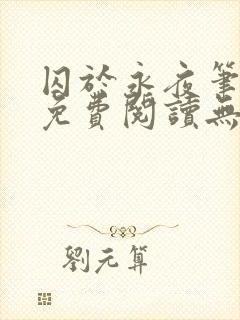 囚於永夜筆
免費閱讀無
劉元算